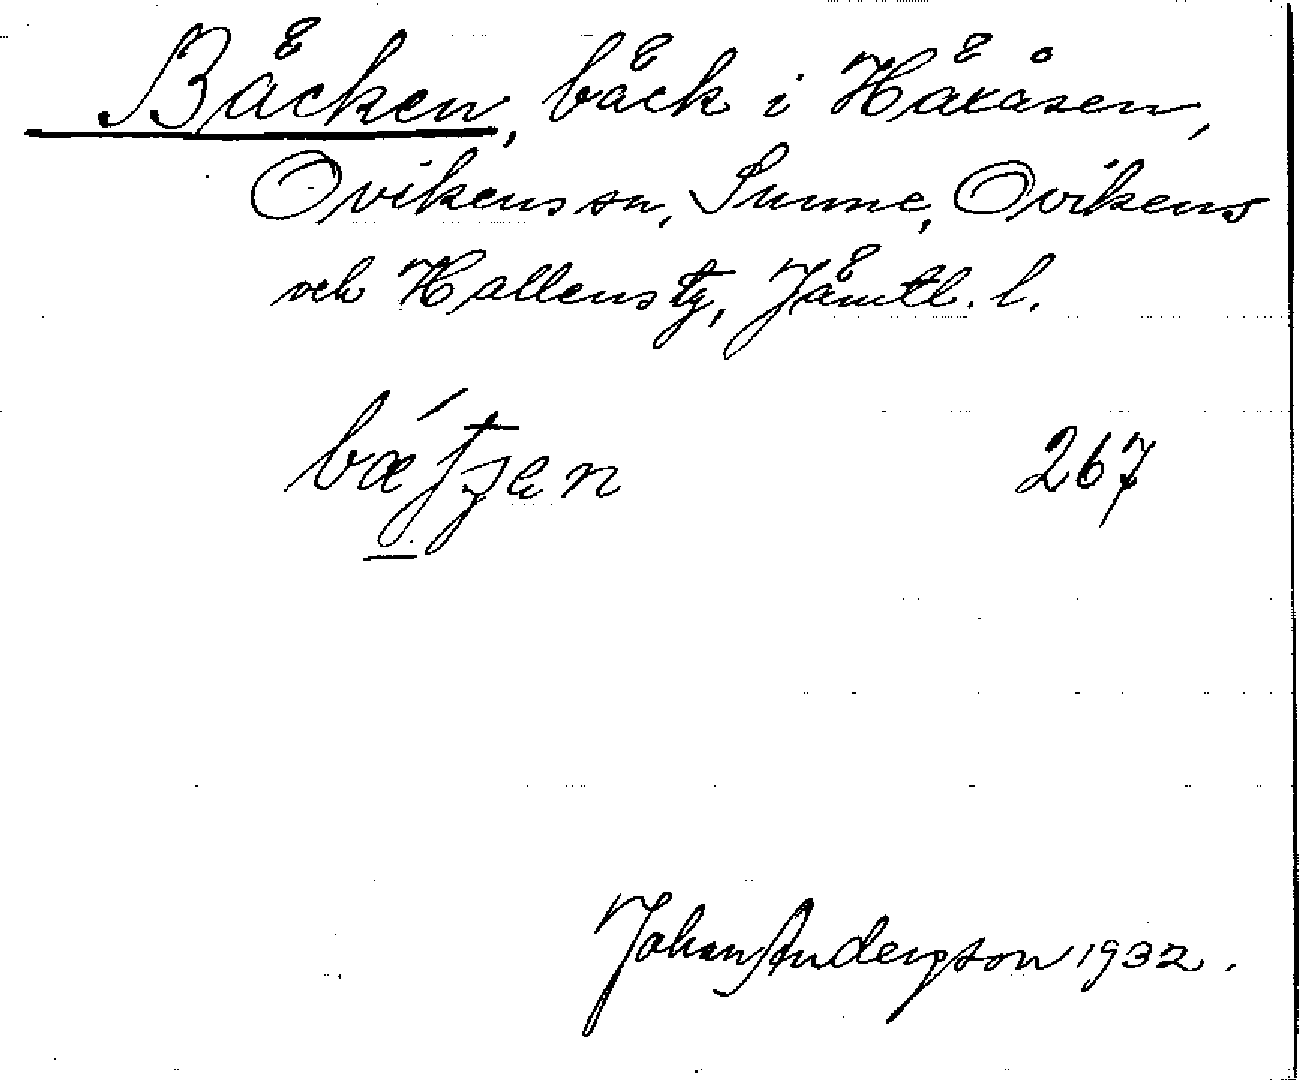 Bäcken, bäck i Häxåsen,
Ovikens sn, Sunne, Ovikens
och Hallens tg, Jämtl. l.
267
Johan Anderzson 1932.